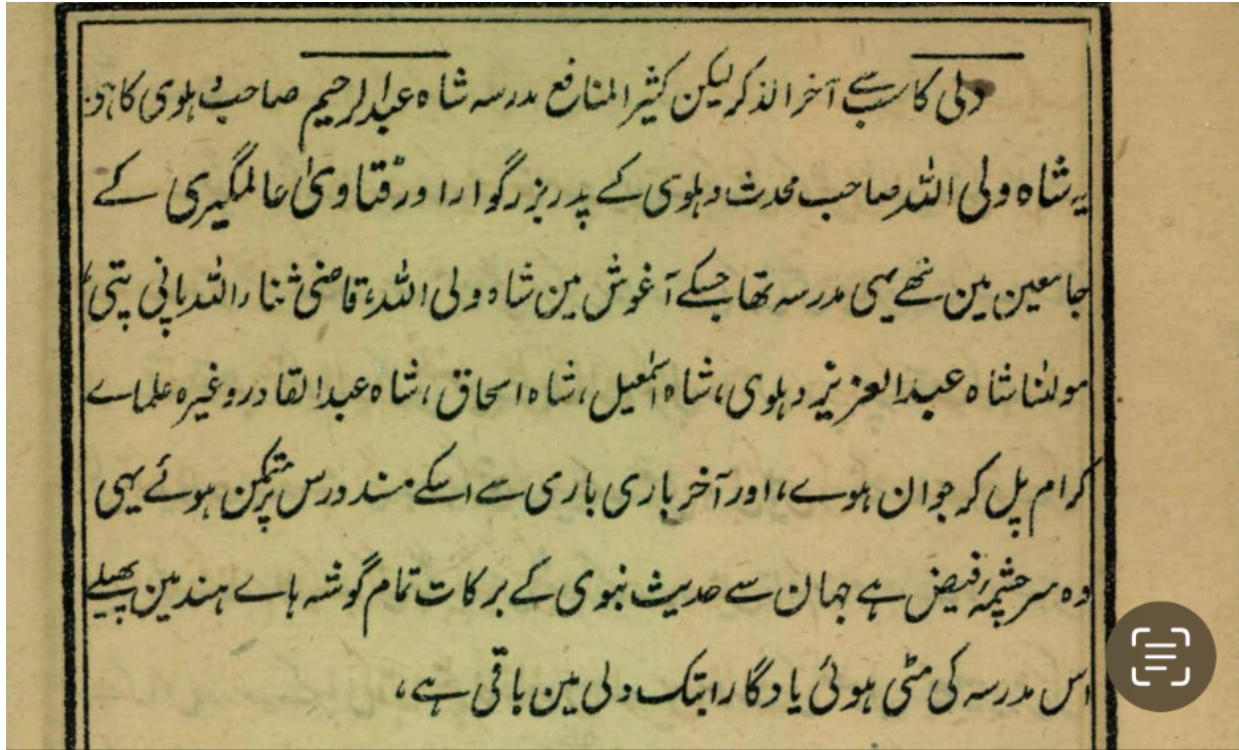 دلی کا سب سے آخر الذکر لیکن کثیر المنافع مدرسہ شاہ عبدالرحیم صاحب دہلوی کا ہی
یہ شاہ ولی اللہ صاحب محدث دہلوی کے پدر بزرگوار اور فتاویٰ عالمگیری کے
جامعین مین تھے یہی مدرسہ تھا جسکے آغوش مین شاہ ولی اللہ، قاضی ثناء اللہ پانی پتی،
مولٰنا شاہ عبدالعزیز دہلوی، شاہ اسمٰعیل، شاہ اسحاق، شاہ عبدالقادر وغیرہ علماے
کرام پل کر جوان ہوے، اور آخر باری باری سے اسکے مسند درس پر متمکن ہوئے یہی
وہ سرچشمۂ فیض ہے جہان سے حدیث نبوی کے برکات تمام گوشہ ہاے ہند مین پھیلے
اس مدرسہ کی مٹی ہوئی یادگار ابتک دلی مین باقی ہے،